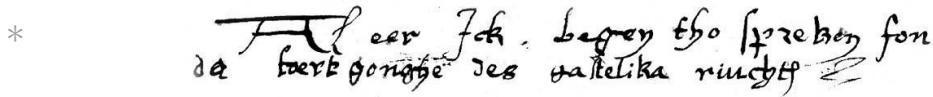 * Al eer Jck . begey tho sprekey fon
da foertgonghe des gastelika riuchtes